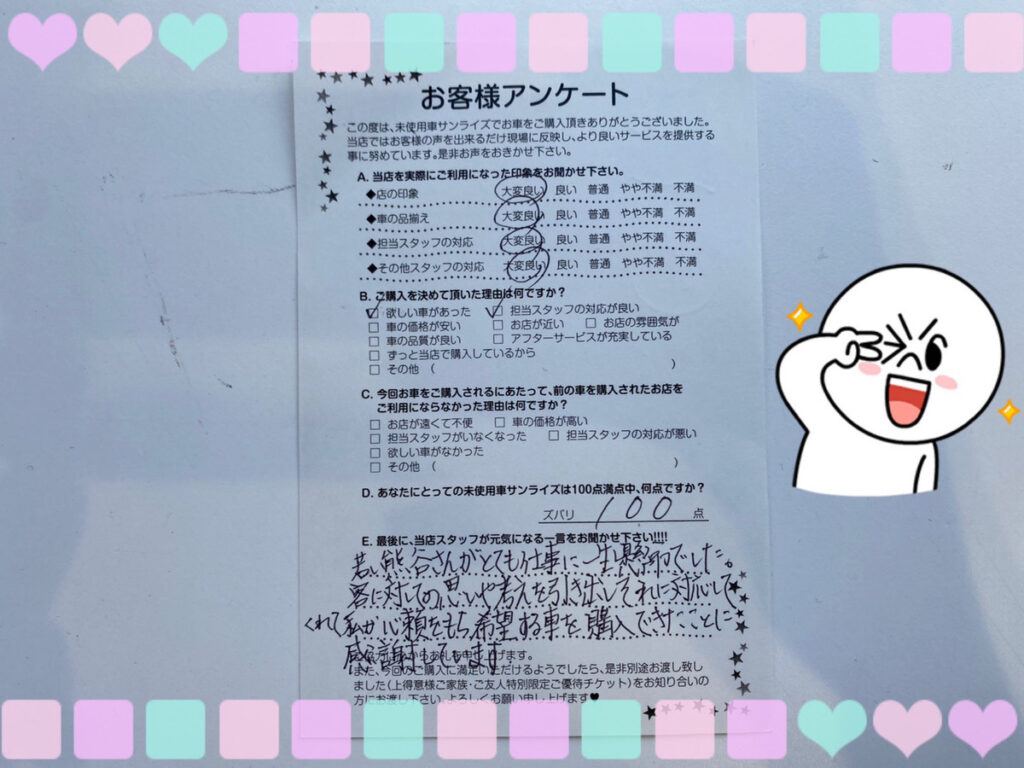 お客様アンケート
この度は、未使用車サンライズでお車をご購入頂きありがとうございました。
当店ではお客様の声を出来るだけ現場に反映し、より良いサービスを提供する
事に努めています。是非お声をおきかせ下さい。
A. 当店を実際にご利用になった印象をお聞かせ下さい。
◆店の印象 大変良い 良い 普通 やや不満 不満
◆車の品揃え 大変良い 良い 普通 やや不満 不満
◆担当スタッフの対応 大変良い 良い 普通 やや不満 不満
◆その他スタッフの対応 大変良い 良い 普通 やや不満 不満
B. ご購入を決めて頂いた理由は何ですか?
☑ 欲しい車があった ☑ 担当スタッフの対応が良い
□ 車の価格が安い □ お店が近い □ お店の雰囲気が
□ 車の品質が良い □ アフターサービスが充実している
□ ずっと当店で購入しているから
□ その他 ( )
C. 今回お車をご購入されるにあたって、前の車を購入されたお店を
ご利用にならなかった理由は何ですか?
□ お店が遠くて不便 □ 車の価格が高い
□ 担当スタッフがいなくなった □ 担当スタッフの対応が悪い
□ 欲しい車がなかった
□ その他 ( )
D. あなたにとっての未使用車サンライズは100点満点中、何点ですか?
ズバリ 100 点
E. 最後に、当店スタッフが元気になる一言をお聞かせ下さい!!!!
若い熊谷さんがとても仕事に一生懸命でした。
客に対しての思いや考えを引き出しそれに対応して
くれて私が心頼をもち希望する車を購入できたことに
感謝しています。
からお礼を申し上げます。
また、今回のご購入に満足いただけるようでしたら、是非別途お渡し致し
ました(上得意様ご家族・ご友人特別限定ご優待チケット)をお知り合いの
方にお渡し下さい。よろしくお願い申し上げます♥